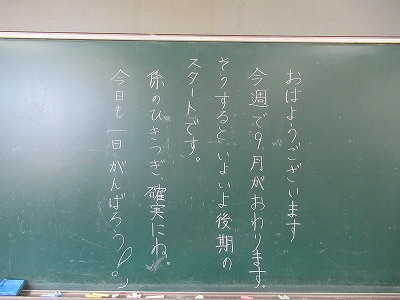 おはようございます
今週で9月がおわります。
そうするといよいよ後期の
スタートです。
係のひきつぎ、確実にね。
今日も一日がんばろう!。